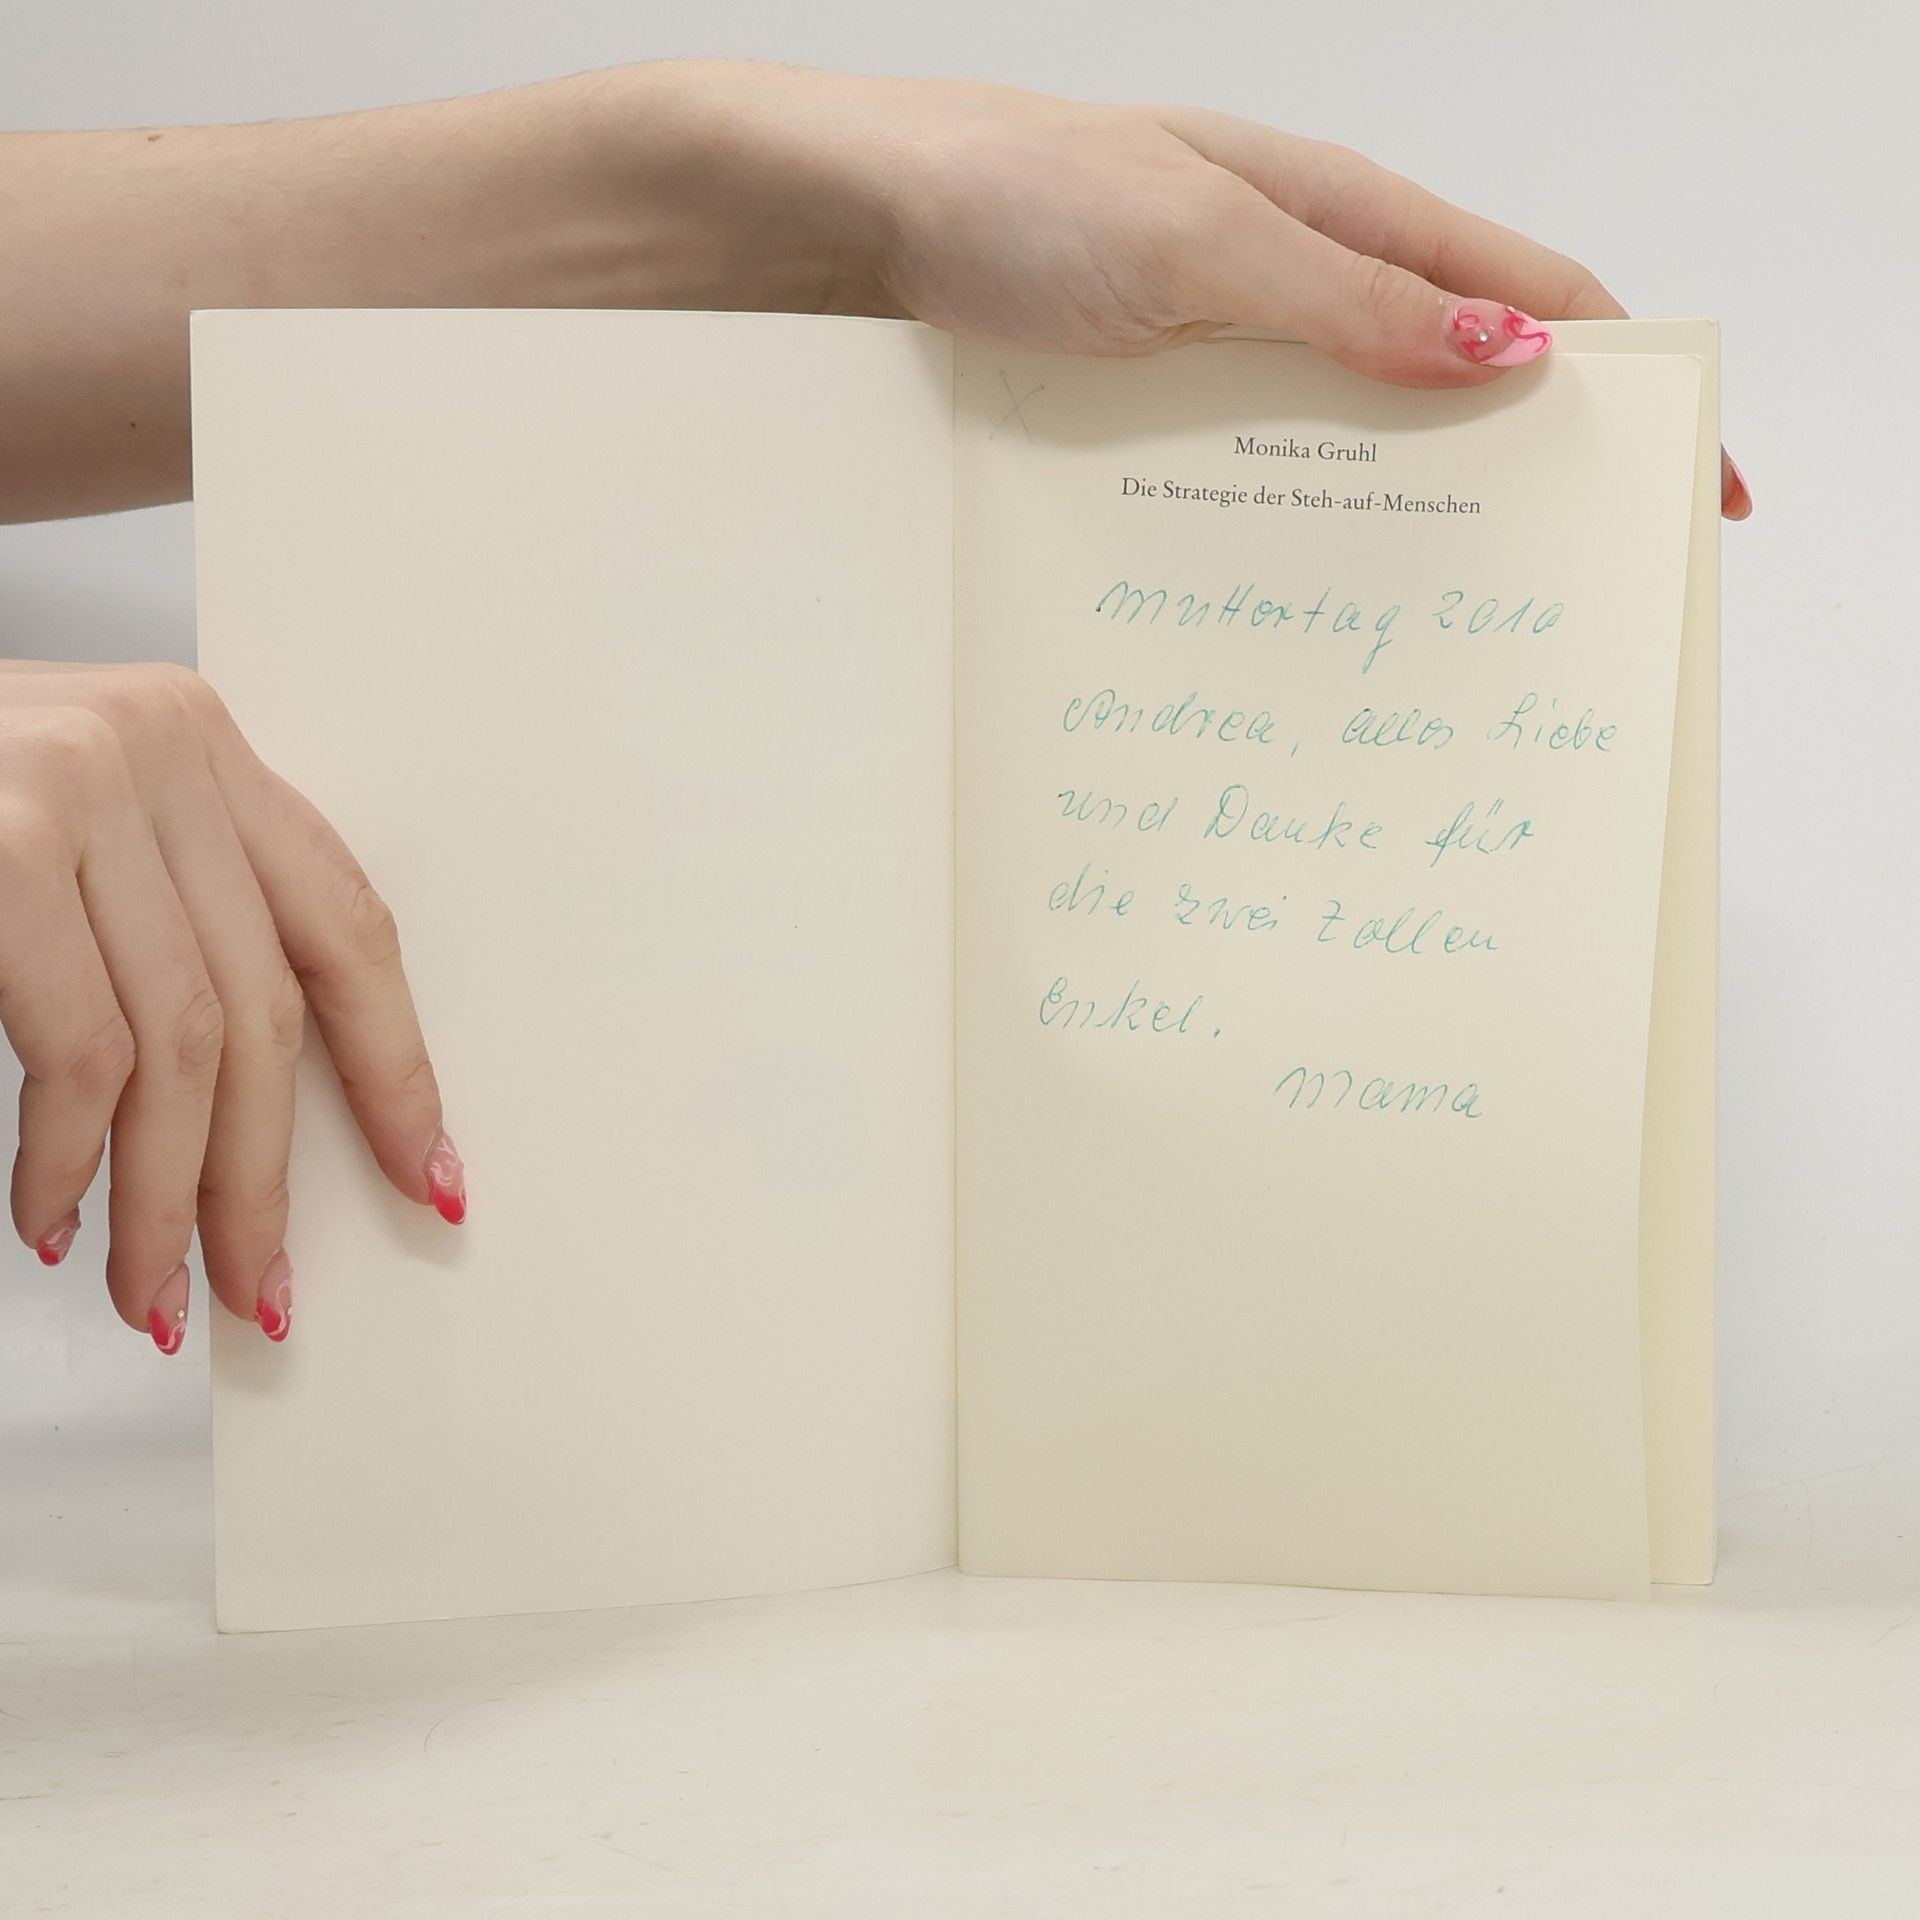 Monika Gruhl
Die Strategie der Steh-auf-Menschen
Muttertag 2010
Andrea, alles Liebe
und Danke für
die zwei tollen
Enkel.
Mama